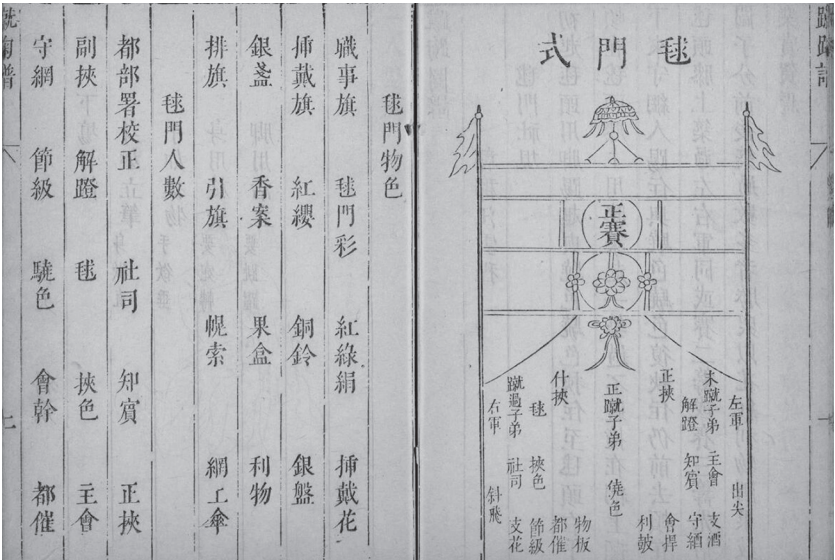 毬門式
正賽
左軍 出尖
末蹴子弟 主會 支酒
解蹬 知賓 守
正挾 會捍
利
正蹴子弟 僥色
物板
什挾 都催
毬 挾色 節級
蹴過子弟 社司 支花
右軍 斜飛
毬門物色
職事旗 毬門彩 紅綠絹 揷戴花
揷戴旗 紅纓 銅鈴 銀盤
銀盞 香案 果盒 利物
排旗 引旗 幌索 網工傘
毬門人數
都部署校正 社司 知賓 正挾
副挾 解蹬 毬 挾色 主會
守網 節級 驍色 會幹 都催
七